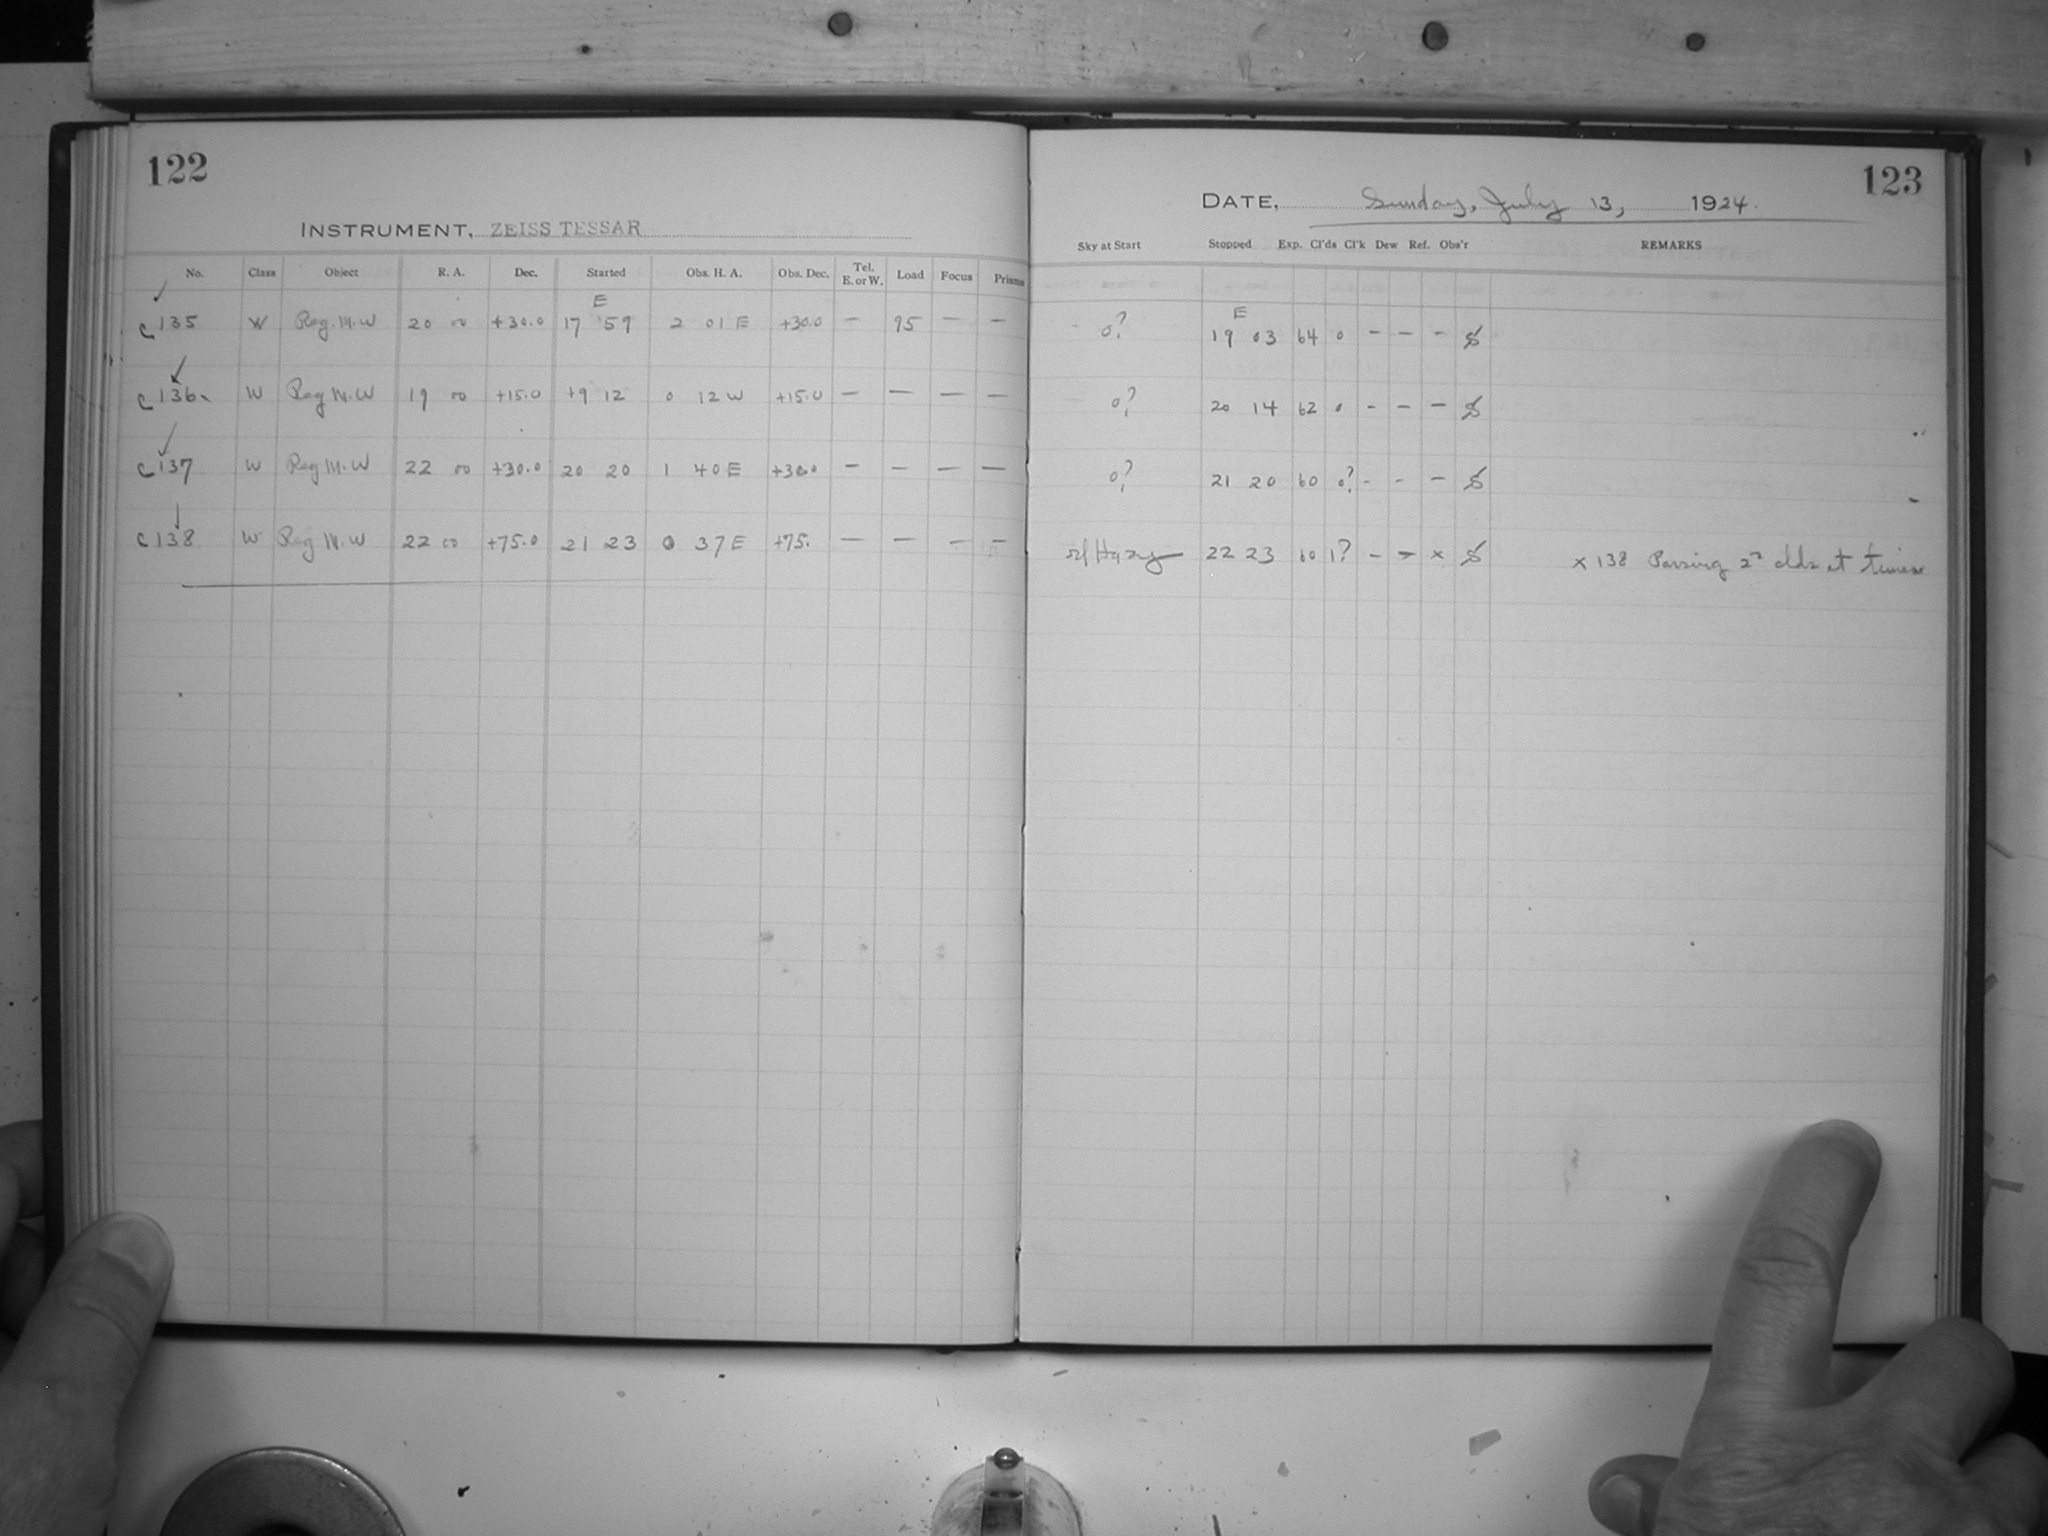 122
INSTRUMENT, ZEISS TESSAR
No. Class Object R. A. Dec. Started Obs. H. A. Obs. Dec. Tel. E. or W. Load Focus Prisms
E
c 135 W Reg. M. W 20 00 +30.0 17 59 2 01 E +30.0 — 95 — —
c 136 W Reg M. W 19 00 +15.0 19 12 0 12 W +15.0 — — — —
c 137 W Reg M. W 22 00 +30.0 20 20 1 40 E +30.0 — — — —
c 138 W Reg M. W 22 00 +75.0 21 23 0 37 E +75. — — — —
123
DATE, Sunday, July 13, 1924.
Sky at Start Stopped Exp. Cl'ds Cl'k Dew Ref. Obs'r REMARKS
E
0? 19 03 64 0 – – – S
0? 20 14 62 0 – – – S
0? 21 20 60 0? – – – S
Hazy 22 23 60 1? – – x S x 138 Passing clds at times